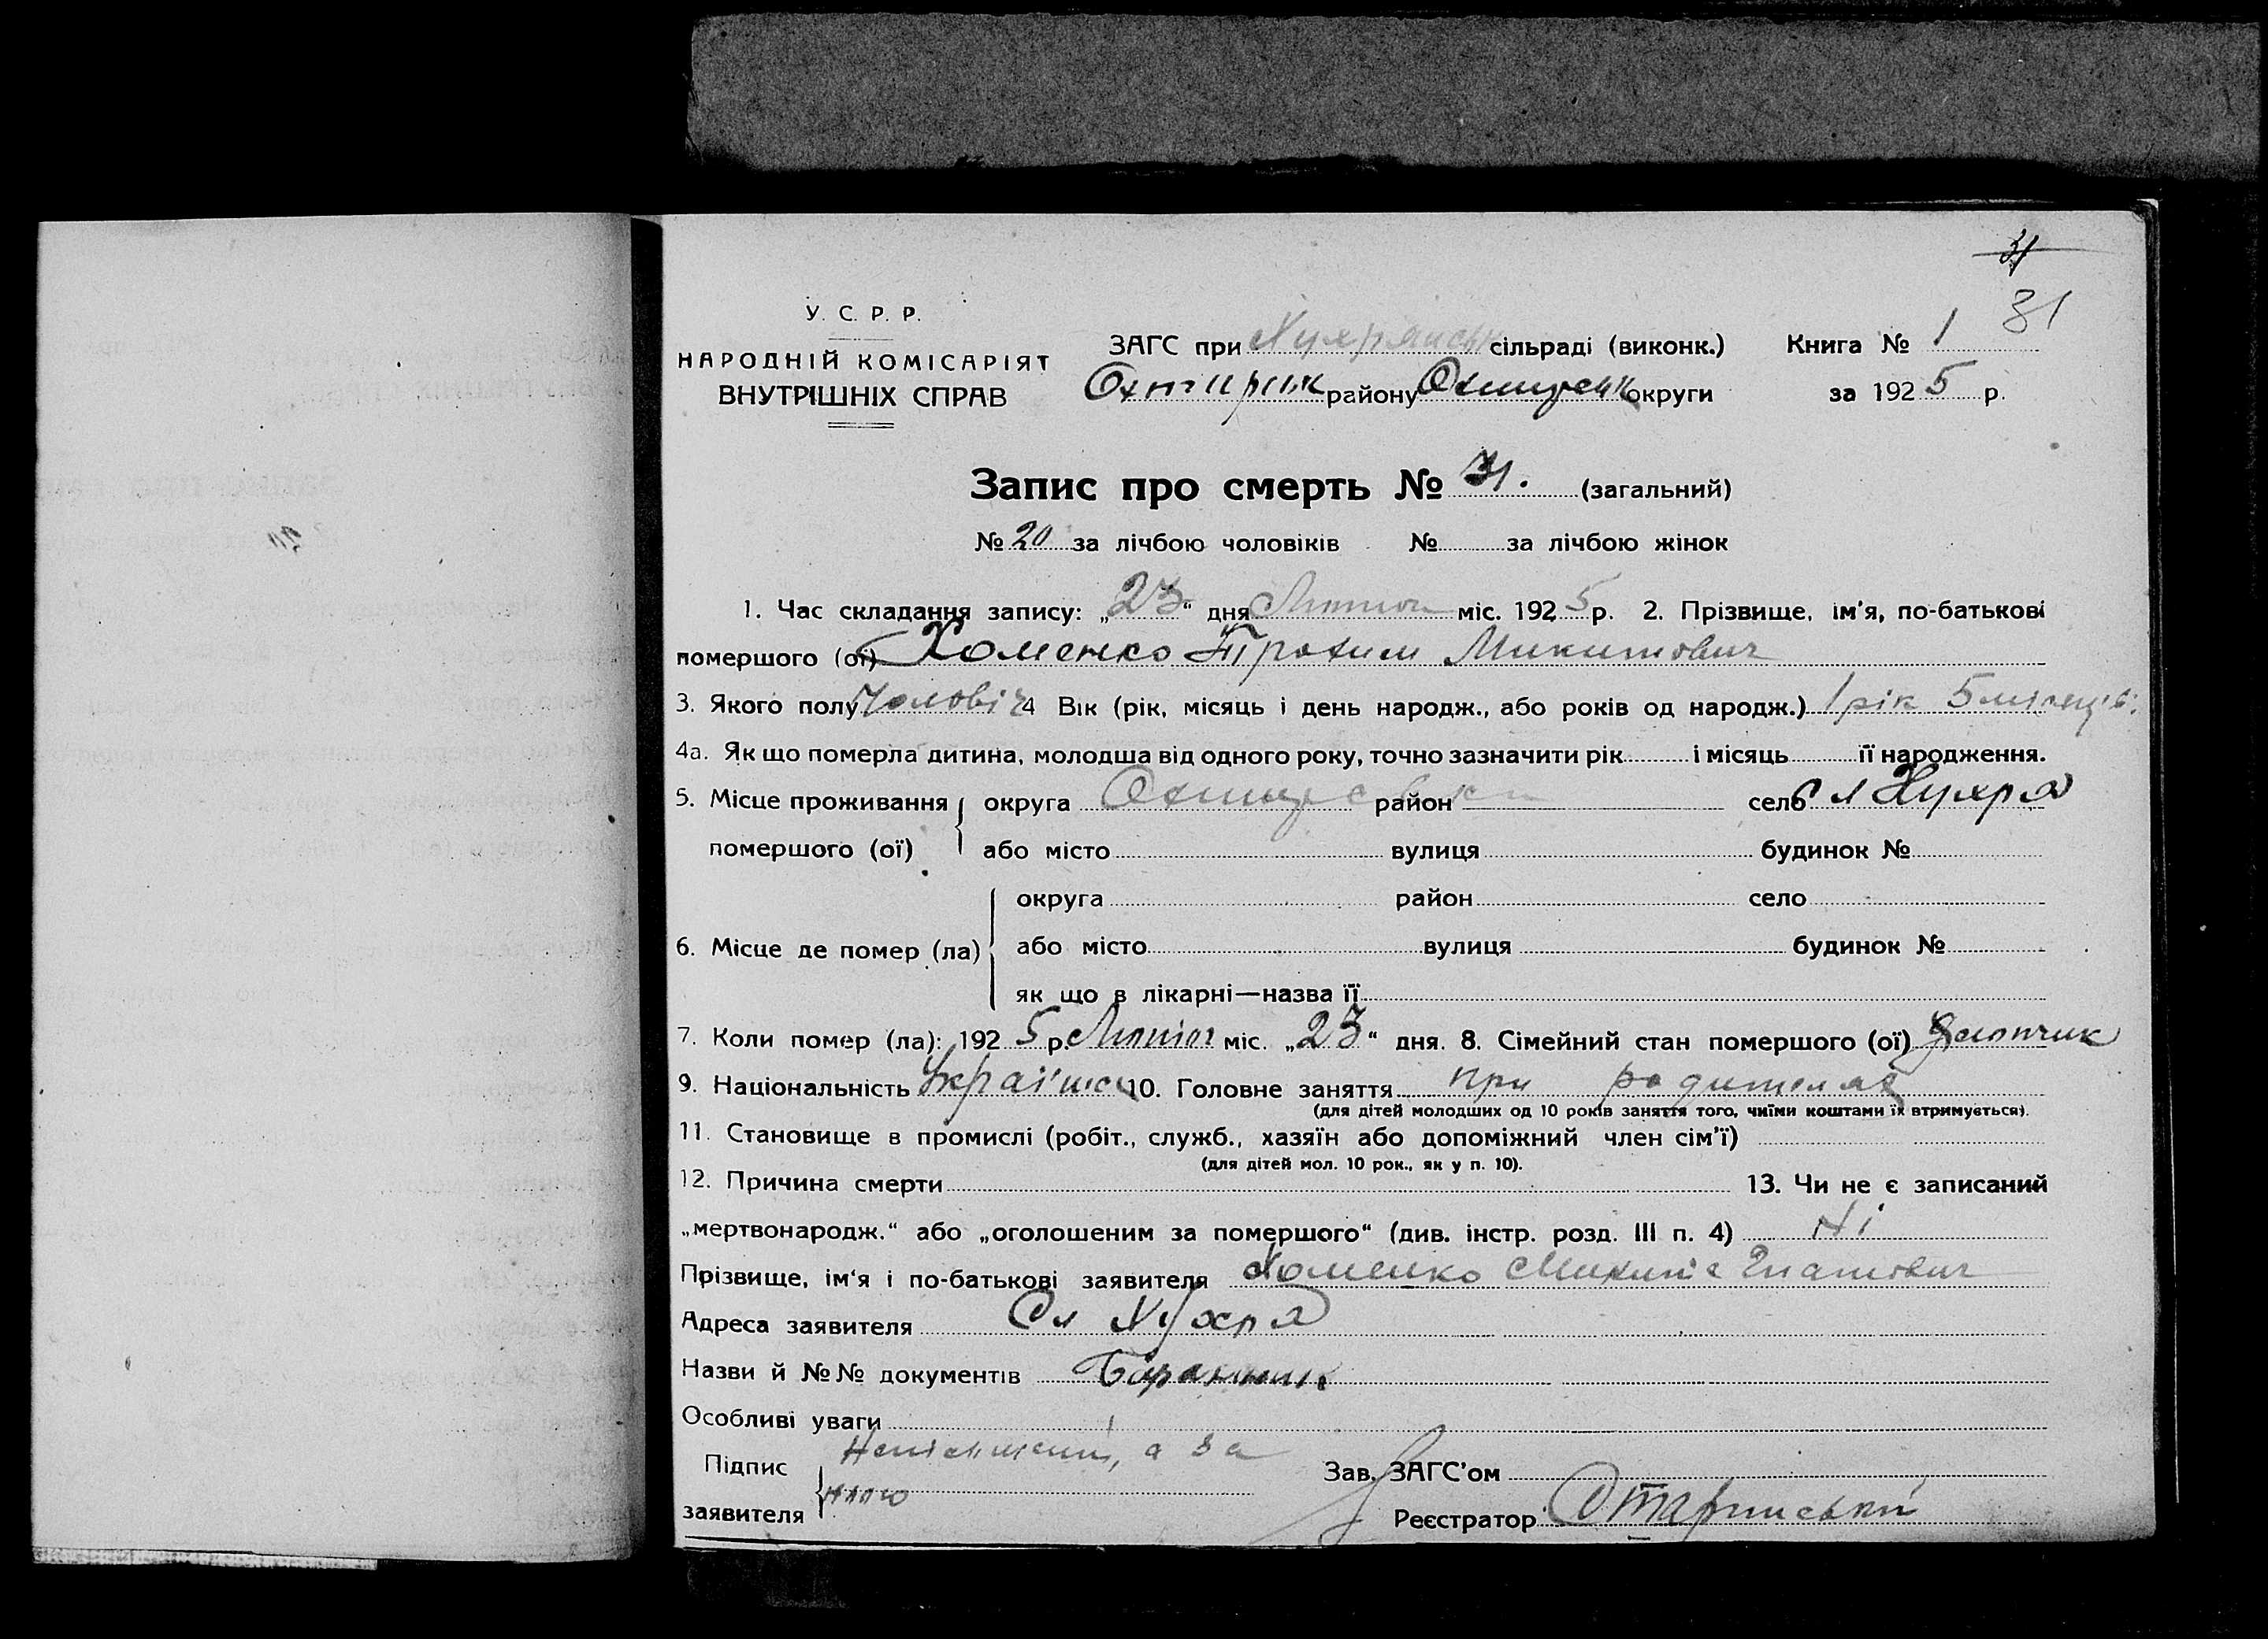 31
У. С. Р. Р.
НАРОДНІЙ КОМІСАРІЯТ
ВНУТРІШНІХ СПРАВ
ЗАГС при Хухрянськ сільраді (виконк.) Книга № 1 31
Охтирськ району округи за 1925 р.
Запис про смерть № 31. (загальний)
№ 20 за лічбою чоловіків № за лічбою жінок
1. Час складання запису: „23“ дня Лютого міс. 1925 р. 2. Прізвище, ім'я, по-батькові
помершого (ої) Хоменко Трохим Микитович
3. Якого полу Чоловіч 4 Вік (рік, місяць і день народж., або років од народж.) 1 рік 5 місяців
4а. Як що померла дитина, молодша від одного року, точно зазначити рік і місяць її народження.
5. Місце проживання округа район село Сл Хухра
помершого (ої) або місто вулиця будинок №
округа район село
6. Місце де помер (ла) або місто вулиця будинок №
як що в лікарні—назва її
7. Коли помер (ла): 1925 р. Лютого міс. „23“ дня. 8. Сімейний стан помершого (ої) Хлопчик
9. Національність 10. Головне заняття при родителях
(для дітей молодших од 10 років заняття того, чиїми коштами їх втримується).
11. Становище в промислі (робіт., служб., хазяїн або допоміжний член сім'ї)
(для дітей мол. 10 рок., як у п. 10).
12. Причина смерти 13. Чи не є записаний
„мертвонародж.“ або „оголошеним за помершого“ (див. інстр. розд. III п. 4) Ні
Прізвище, ім'я і по-батькові заявителя Хоменко Микита
Адреса заявителя Сл Хухра
Назви й №№ документів
Особливі уваги
Підпис Неписьменний, а за Зав. ЗАГС'ом
заявителя нього Реєстратор